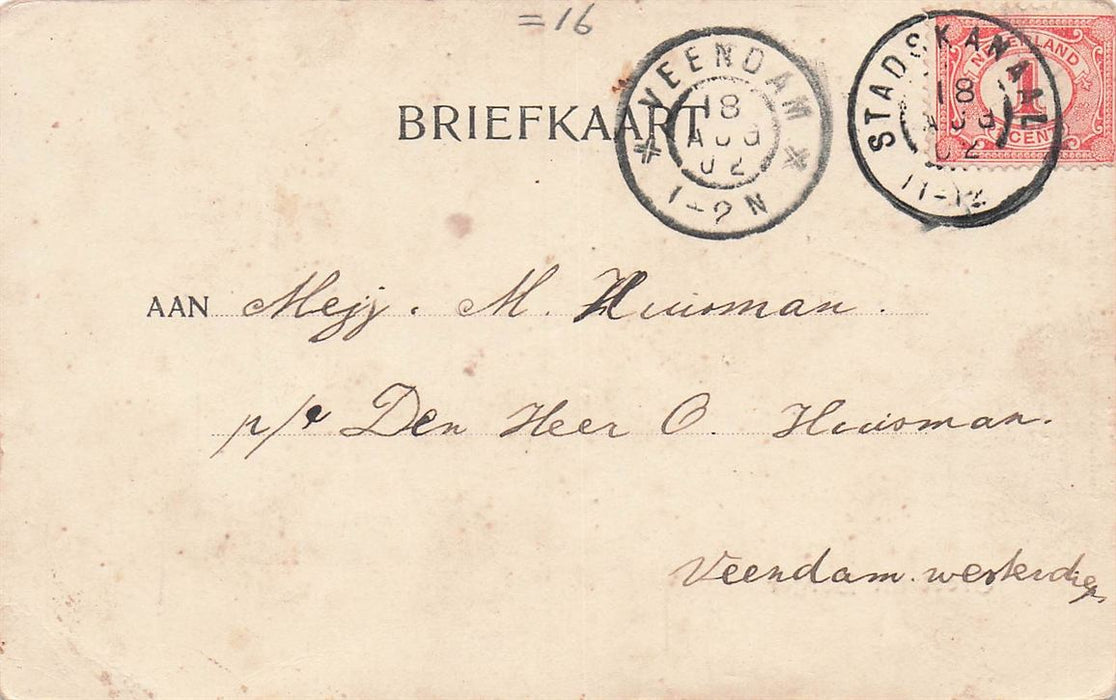 =16
BRIEFKAART
VEENDAM
18
AUG
02
1-2N
STADSKANAAL
18
AUG
02
11-12
NEDERLAND
1
CENT
AAN Mejj. M. Huisman.
p/a Den Heer O. Huisman.
Veendam.